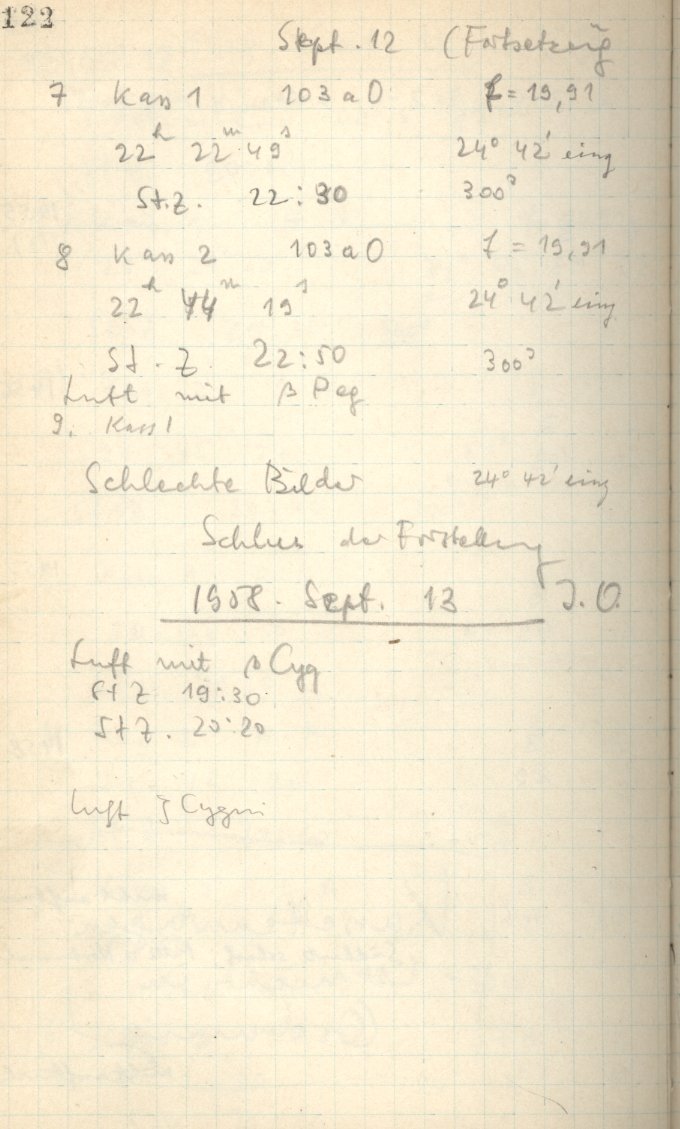 122
Sept. 12 (Fortsetzung
7 Kass 1 103aO f = 19,91
22h 22m 49s 24° 42' eing
St.Z. 22:30 300s
8 Kass 2 103aO f = 19,91
22h 44m 19s 24° 42' eing
St.Z. 22:50 300s
Luft mit β Peg
9. Kass 1
Schlechte Bilder 24° 42' eing
Schluss der
1958. Sept. 13 J.O.
Luft mit β Cyg
St Z 19:30
St Z. 20:20
Luft ζ Cygni